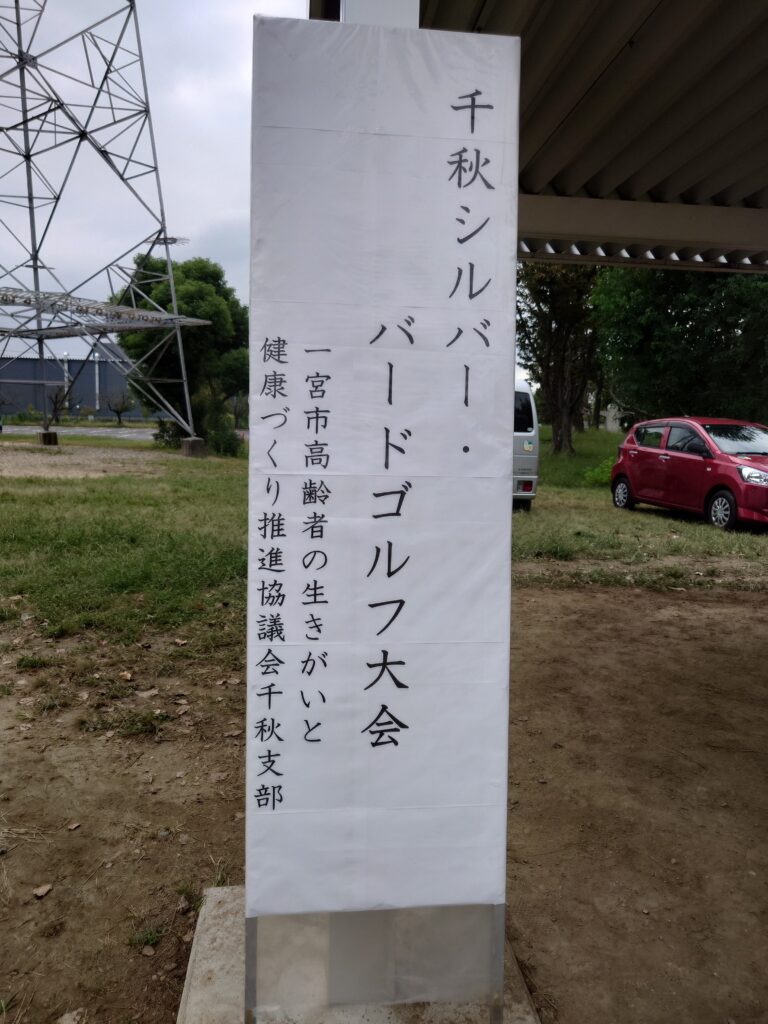 千秋シルバー・
バードゴルフ大会
一宮市高齢者の生きがいと
健康づくり推進協議会千秋支部